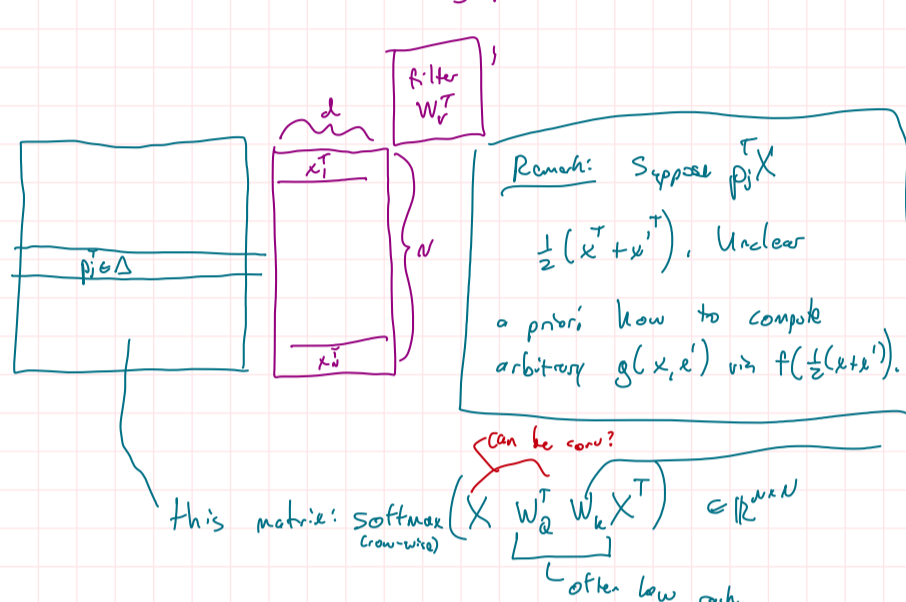 filter
W_v^T
d
x_1^T
N
p_j^T ∈ Δ
x_N^T
Remark: Suppose p_j^T X
1/2 (x^T + x'^T). Unclear
a priori how to compute
arbitrary g(x, x') via f(1/2(x+x')).
can be conv?
this matrix: softmax (X W_Q^T W_k X^T) ∈ R^{N×N}
(row-wise)
often low